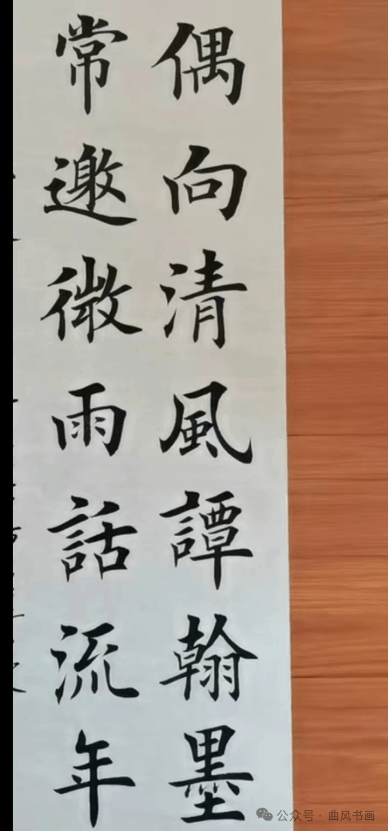 偶向清風譚翰墨
常邀微雨話流年
公众号·曲风书画